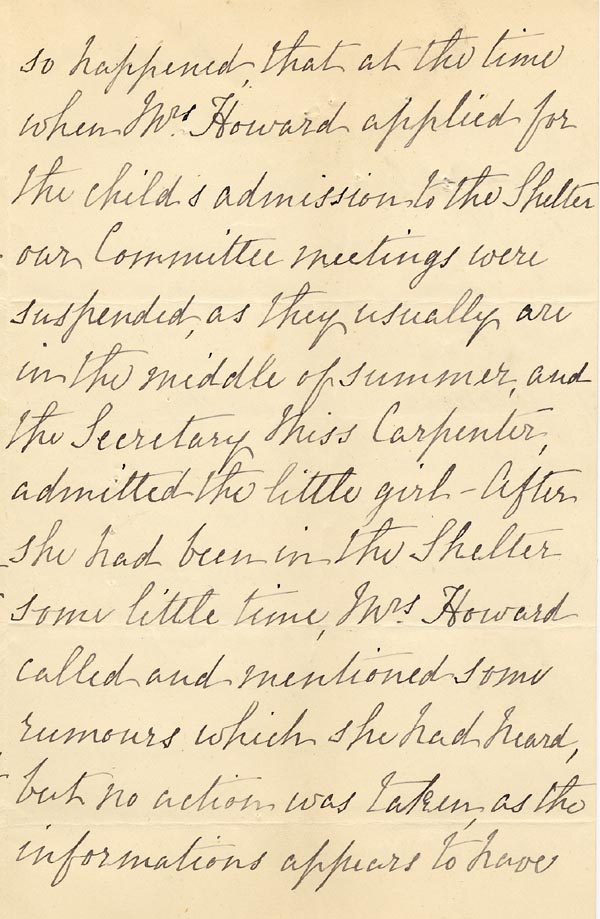 so happened, that at the time
when Mrs. Howard applied for
the child's admission to the Shelter
our Committee meetings were
suspended, as they usually are
in the middle of summer, and
the Secretary Miss Carpenter,
admitted the little girl - After
she had been in the Shelter
some little time, Mrs. Howard
called and mentioned some
rumours which she had heard,
but no action was taken, as the
informations appears to have